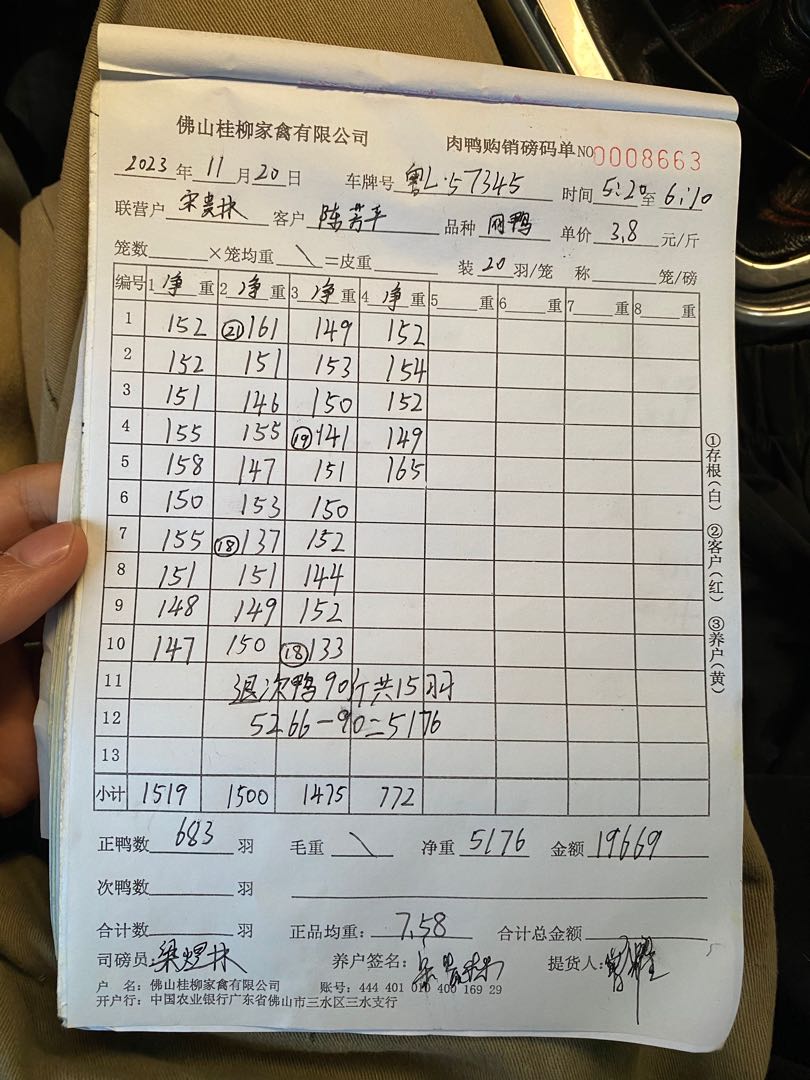 佛山桂柳家禽有限公司 肉鸭购销磅码单 NO 0008663
2023年11月20日 车牌号 粤L·57345 时间 5:20至6:10
联营户 客户 陈芳平 品种 单价 3.8 元/斤
笼数 ×笼均重 \ =皮重 装 20 羽/笼 称 笼/磅
编号 1 净 重 2 净 重 3 净 重 4 净 重 5 重 6 重 7 重 8 重
1 152 ㉑161 149 152
2 152 151 153 154
3 151 146 150 152
4 155 155 ⑲141 149
5 158 147 151 165
6 150 153 150
7 155 ⑱137 152
8 151 151 144
9 148 149 152
10 147 150 ⑱133
11 退次鸭90斤共15羽
12 5266-90=5176
13
小计 1519 1500 1475 772
①存根(白) ②客户(红) ③养户(黄)
正鸭数 683 羽 毛重 \ 净重 5176 金额 19669
次鸭数 羽
合计数 羽 正品均重: 7.58 合计总金额
司磅员: 梁煜林 养户签名: 提货人:
户 名: 佛山桂柳家禽有限公司 账号: 444 401 010 400 169 29
开户行: 中国农业银行广东省佛山市三水区三水支行